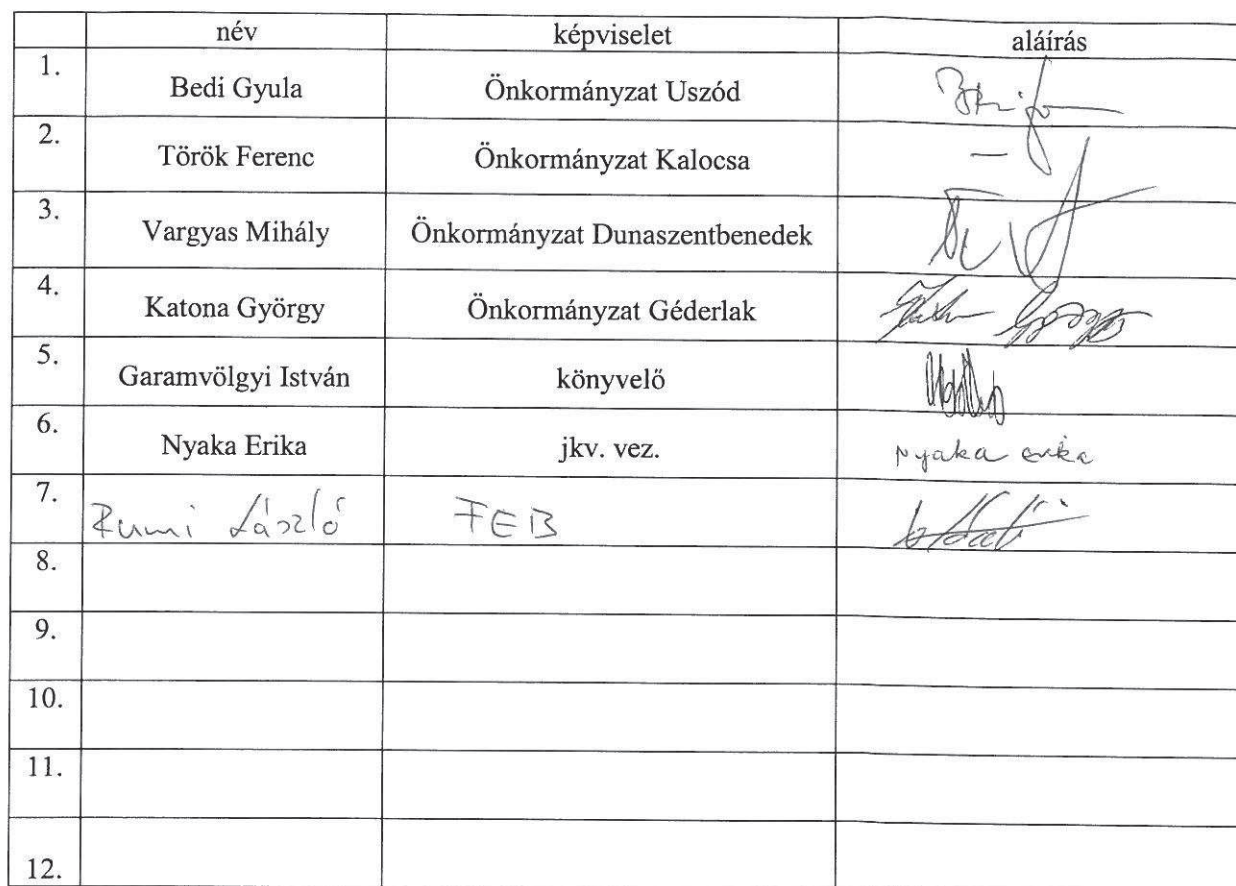 név képviselet aláírás
1. Bedi Gyula Önkormányzat Uszód
2. Török Ferenc Önkormányzat Kalocsa —
3. Vargyas Mihály Önkormányzat Dunaszentbenedek
4. Katona György Önkormányzat Géderlak
5. Garamvölgyi István könyvelő
6. Nyaka Erika jkv. vez. Nyaka Erika
7. Rumi László FEB
8.
9.
10.
11.
12.